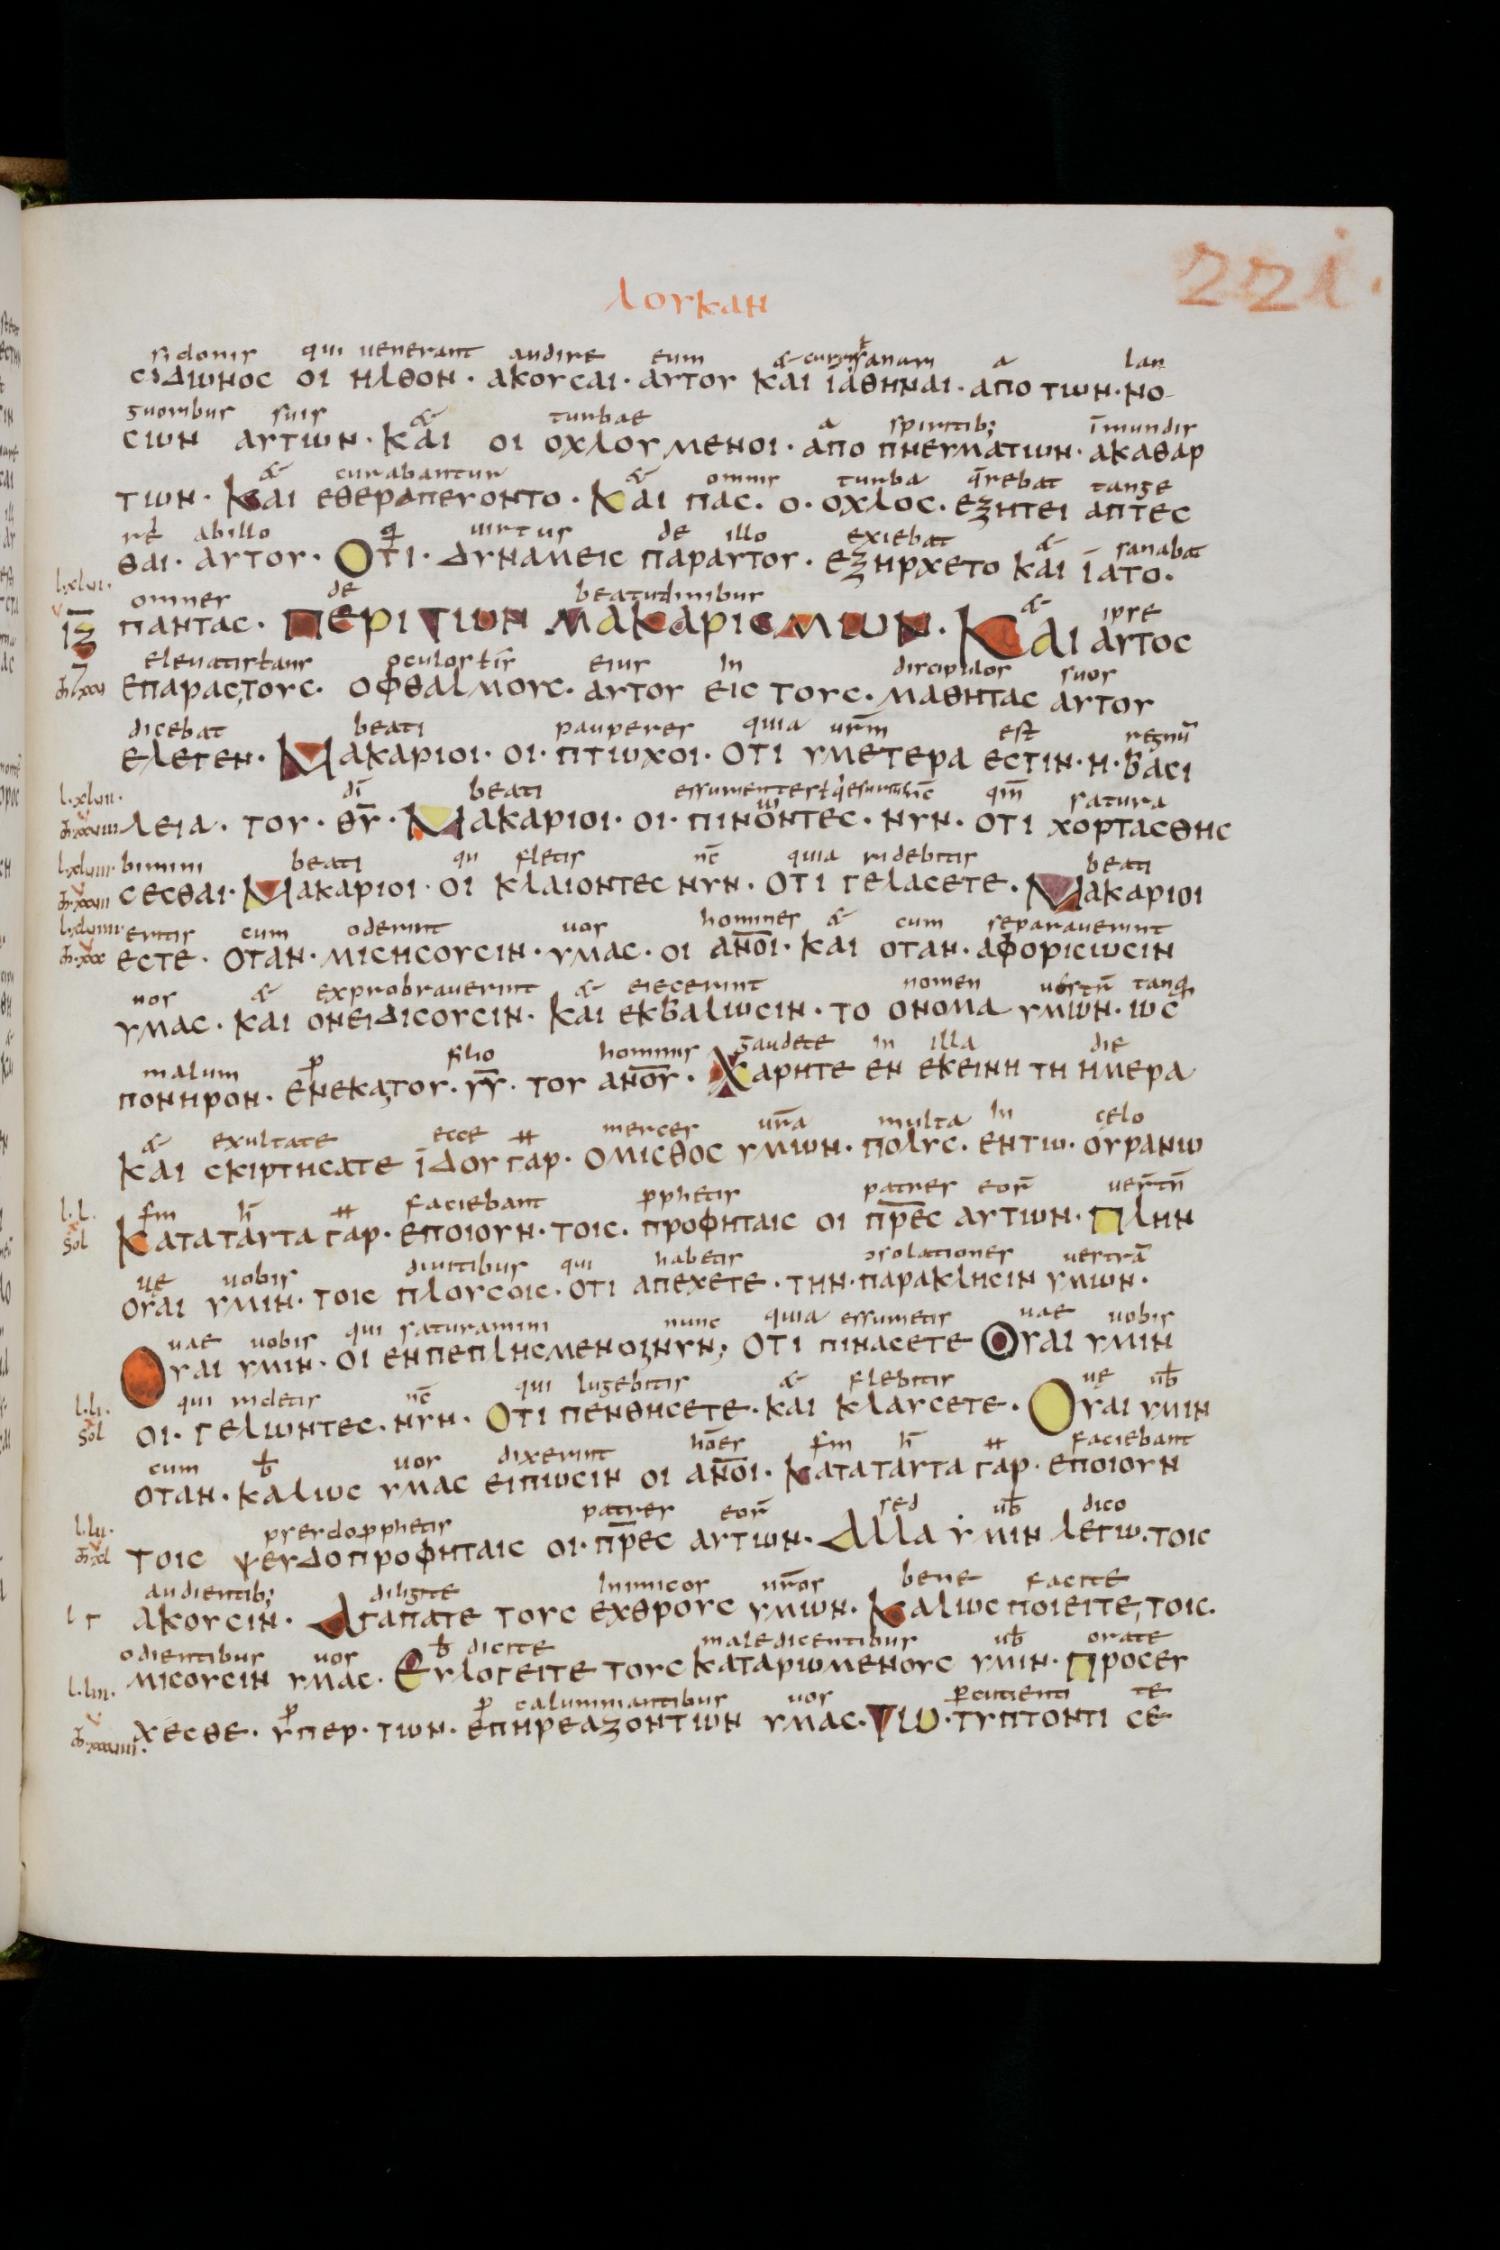 221.
λουκαν
sidonis qui uenerant audire eum & sanarıı a lan
CΙΔωΝΟC ΟΙ ΗΛΘΟΝ · ΑΚΟΥCΑΙ · ΑΥΤΟΥ ΚΑΙ ΙΑΘΗΝΑΙ · ΑΠΟ ΤωΝ · ΝΟ-
guoribus suis & turbae a spiritib; īmundis
CΙωΝ ΑΥΤωΝ · ΚΑΙ ΟΙ ΟΧΛΟΥΜΕΝΟΙ · ΑΠΟ ΠΝΕΥΜΑΤωΝ · ΑΚΑΘΑΡ
& curabantur & omnis turba q̄rebat tange
ΤωΝ · ΚΑΙ ΕΘΕΡΑΠΕΥΟΝΤΟ · ΚΑΙ ΠΑC · Ο · ΟΧΛΟC · ΕΖΗΤΕΙ ΑΠΤΕC
re abillo uirtus de illo exiebat & sanabat
ΘΑΙ · ΑΥΤΟΥ · ΟΤΙ · ΔΥΝΑΜΕΙC ΠΑΡΑΥΤΟΥ · ΕΞΗΡΧΕΤΟ ΚΑΙ ΙΑΤΟ ·
omnes de beatudinibus & ipse
ΙΖ ΠΑΝΤΑC · ΠΕΡΙ ΤωΝ ΜΑΚΑΡΙCΜωΝ · ΚΑΙ ΑΥΤΟC
eleuatis eius in discipulos suos
ΕΠΑΡΑC,ΤΟΥC · ΟΦΘΑΛΜΟΥC · ΑΥΤΟΥ ΕΙC ΤΟΥC · ΜΑΘΗΤΑC ΑΥΤΟΥ
dicebat beati pauperes quia ur̄m est regnū
ΕΛΕΓΕΝ · ΜΑΚΑΡΙΟΙ · ΟΙ · ΠΤωΧΟΙ · ΟΤΙ ΥΜΕΤΕΡΑ ΕCΤΙΝ · Η · ΒΑCΙ
dī beati qm̄ satura
ΛΕΙΑ · ΤΟΥ · Θ̅Υ̅ · ΜΑΚΑΡΙΟΙ · ΟΙ · ΠΙΝΟΝΤΕC · ΝΥΝ · ΟΤΙ ΧΟΡΤΑCΘΗC
bimini beati qui fletis nc̄ quia ridebitis beati
CΕCΘΑΙ · ΜΑΚΑΡΙΟΙ · ΟΙ ΚΛΑΙΟΝΤΕC ΝΥΝ · ΟΤΙ ΓΕΛΑCΕΤΕ · ΜΑΚΑΡΙΟΙ
eritis cum oderint uos homines & cum separauerint
ΕCΤΕ · ΟΤΑΝ · ΜΙCΗCΟΥCΙΝ · ΥΜΑC · ΟΙ ΑΝ̅Ο̅Ι · ΚΑΙ ΟΤΑΝ · ΑΦΟΡΙCωCΙΝ
uos & exprobrauerint & eiecerint nomen tanq
ΥΜΑC · ΚΑΙ ΟΝΕΙΔΙCΟΥCΙΝ · ΚΑΙ ΕΚΒΑΛωCΙΝ · ΤΟ ΟΝΟΜΑ ΥΜωΝ · ωC
malum p filio hominis gaudete in illa die
ΠΟΝΗΡΟΝ · ΕΝΕΚΑ,ΤΟΥ · Υ̅Υ̅ · ΤΟΥ ΑΝ̅Ο̅Υ · ΧΑΡΗΤΕ ΕΝ ΕΚΕΙΝΗ ΤΗ ΗΜΕΡΑ
& exultate ecce merces ur̄a multa in celo
ΚΑΙ CΚΙΡΤΗCΑΤΕ ΙΔΟΥ ΓΑΡ · ΟΜΙCΘΟC ΥΜωΝ · ΠΟΛΥC · ΕΝΤω · ΟΥΡΑΝω
h̄ faciebant pphetis patres eor̄
ΚΑΤΑ ΤΑΥΤΑ ΓΑΡ · ΕΠΟΙΟΥΝ · ΤΟΙC · ΠΡΟΦΗΤΑΙC ΟΙ Π̅Ρ̅ΕC ΑΥΤωΝ · ΠΛΗΝ
ue uobis diuitibus qui habetis ɔsolationes uestrā
ΟΥΑΙ ΥΜΙΝ · ΤΟΙC ΠΛΟΥCΟΙC · ΟΤΙ ΑΠΕΧΕΤΕ · ΤΗΝ · ΠΑΡΑΚΛΗCΙΝ ΥΜωΝ ·
uae uobis qui saturamini nunc quia essurietis uae uobis
ΟΥΑΙ ΥΜΙΝ · ΟΙ ΕΝΠΕΠΛΗCΜΕΝΟΙ,ΝΥΝ; ΟΤΙ ΠΙΝΑCΕΤΕ ΟΥΑΙ ΥΜΙΝ
qui ridetis nc̄ qui lugebitis & flebitis ue ub̄
ΟΙ · ΓΕΛωΝΤΕC · ΝΥΝ · ΟΤΙ ΠΕΝΘΗCΕΤΕ · ΚΑΙ ΚΛΑΥCΕΤΕ · ΟΥΑΙ ΥΜΙΝ
cum b̄ uos dixerint hōes h̄ faciebant
ΟΤΑΝ · ΚΑΛωC ΥΜΑC ΕΙΠωCΙΝ ΟΙ ΑΝ̅Ο̅Ι · ΚΑΤΑ ΤΑΥΤΑ ΓΑΡ · ΕΠΟΙΟΥΝ
pserdopphetis patres eor̄ sed ub̄ dico
ΤΟΙC ΨΕΥΔΟΠΡΟΦΗΤΑΙC ΟΙ · Π̅Ρ̅ΕC ΑΥΤωΝ · ΑΛΛΑ ΥΜΙΝ ΛΕΓω · ΤΟΙC
audientib; diligite inimicos ur̄os bene facite
ΑΚΟΥCΙΝ · ΑΓΑΠΑΤΕ ΤΟΥC ΕΧΘΡΟΥC ΥΜωΝ · ΚΑΛωC ΠΟΙΕΙΤΕ,ΤΟΙC ·
odientibus uos b̄ dicite maledicentibus ub̄ orate
ΜΙCΟΥCΙΝ ΥΜΑC · ΕΥΛΟΓΕΙΤΕ ΤΟΥC ΚΑΤΑΡωΜΕΝΟΥC ΥΜΙΝ · ΠΡΟCΕΥ
p p calumniantibus uos pcutienti te
ΧΕCΘΕ · ΥΠΕΡ · ΤωΝ · ΕΠΗΡΕΑΖΟΝΤωΝ ΥΜΑC · Τω · ΤΥΠΤΟΝΤΙ CΕ